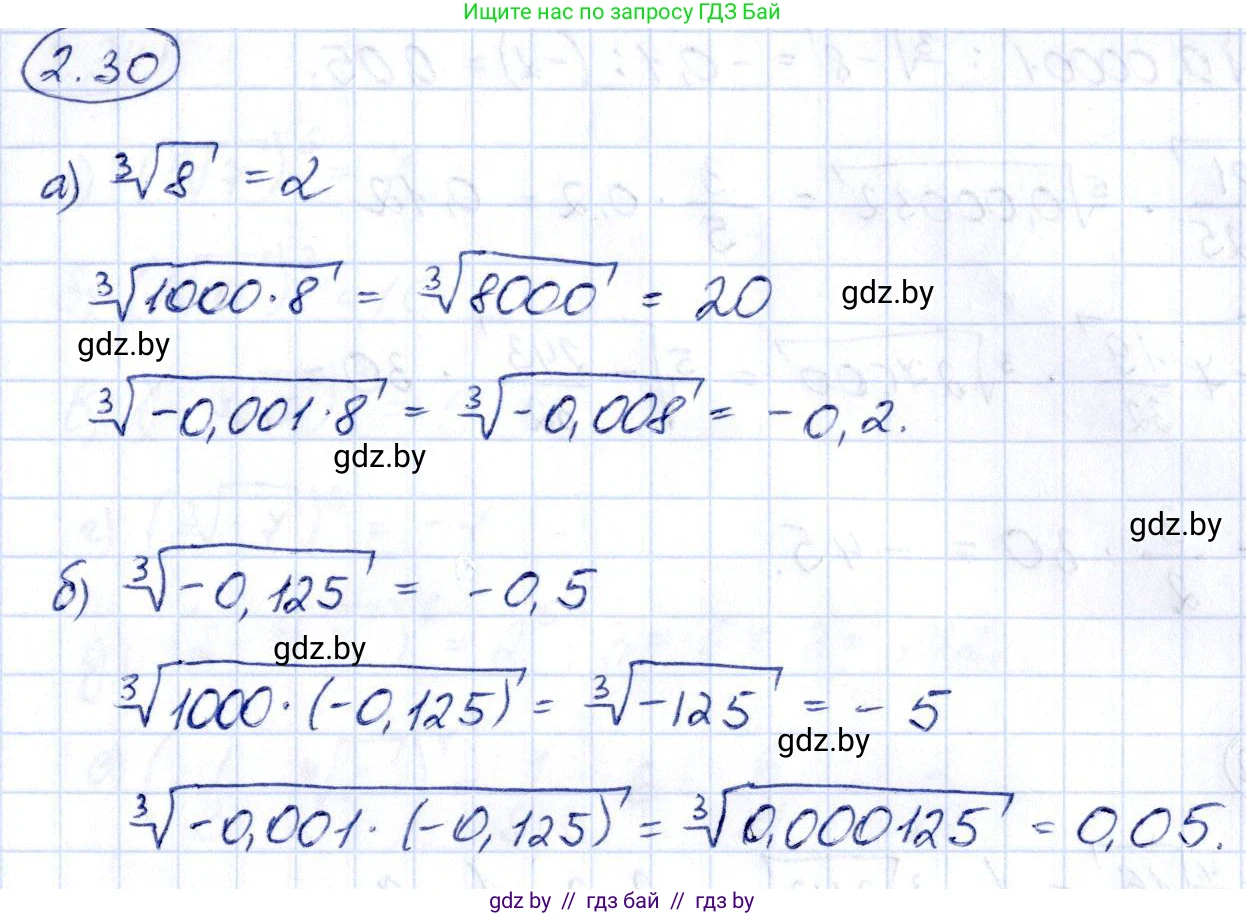 Ищите нас по запросу ГДЗ Бай
2.30
а) ∛8 = 2
∛(1000·8) = ∛8000 = 20
gdz.by
gdz.by
∛(-0,001·8) = ∛(-0,008) = -0,2.
gdz.by
gdz.by
б) ∛(-0,125) = -0,5
gdz.by
∛(1000·(-0,125)) = ∛(-125) = -5
gdz.by
∛(-0,001·(-0,125)) = ∛0,000125 = 0,05.
gdz by // гдз бай // гдз by